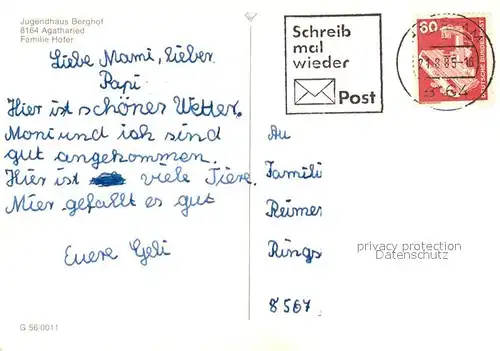 Jugendhaus Berghof
8164 Agatharied
Familie Hofer
Liebe Mami, lieber
Papi
Hier ist schönes Wetter.
Moni und ich sind
gut angekommen.
Hier ist viele Tiere.
Mier gefällt es gut
Euere Geli
G 56/0011
Schreib
mal
wieder
Post
60
DEUTSCHE BUNDESPOST
21.8.85-16
8164
An
Famili
Reimer
Rings
8567
privacy protection
Datenschutz